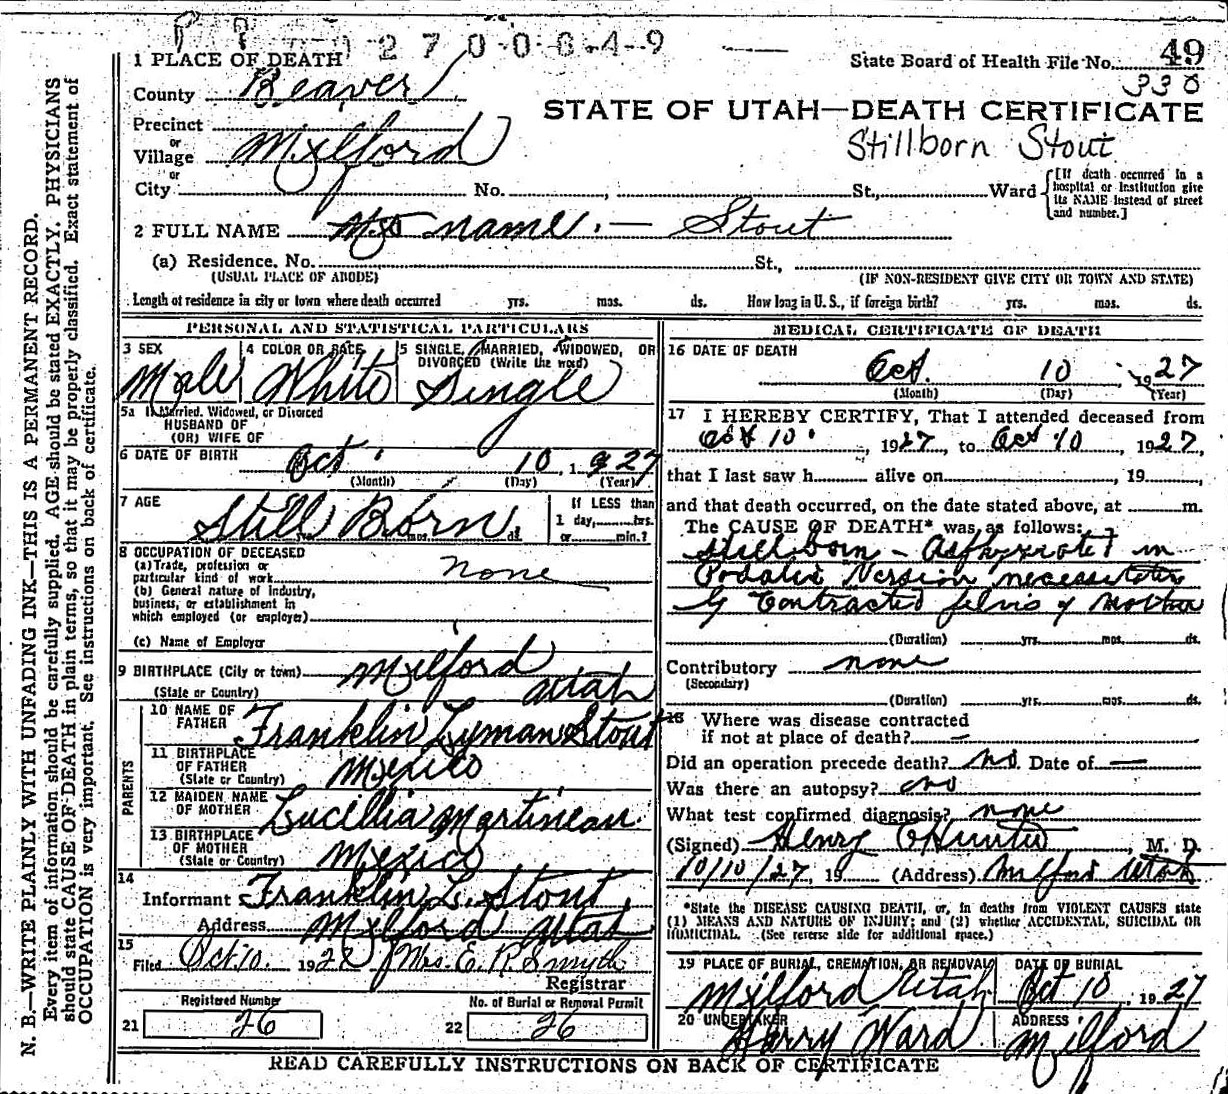 2 7 0 0 6 4 9
1 PLACE OF DEATH
State Board of Health File No. 49
330
County Beaver
STATE OF UTAH—DEATH CERTIFICATE
Precinct
or
Village Milford
Stillborn Stout
or
City No. , St., Ward
[If death occurred in a hospital or institution give its NAME instead of street and number.]
2 FULL NAME No name. — Stout
(a) Residence. No. St.,
(USUAL PLACE OF ABODE) (IF NON-RESIDENT GIVE CITY OR TOWN AND STATE)
Length of residence in city or town where death occurred yrs. mos. ds. How long in U. S., if foreign birth? yrs. mos. ds.
PERSONAL AND STATISTICAL PARTICULARS
3 SEX 4 COLOR OR RACE 5 SINGLE, MARRIED, WIDOWED, OR
DIVORCED (Write the word)
Male White Single
5a If Married, Widowed, or Divorced
HUSBAND OF
(OR) WIFE OF
6 DATE OF BIRTH Oct 10, 1927
(Month) (Day) (Year)
7 AGE
Still Born.
yrs. mos. ds.
If LESS than
1 day, hrs.
or min.?
8 OCCUPATION OF DECEASED
(a) Trade, profession or
particular kind of work None
(b) General nature of Industry,
business, or establishment in
which employed (or employer)
(c) Name of Employer
9 BIRTHPLACE (City or town) Milford
(State or Country) Utah
PARENTS
10 NAME OF
FATHER Franklin Lyman Stout
11 BIRTHPLACE
OF FATHER
(State or Country) Mexico
12 MAIDEN NAME
OF MOTHER Lucillia Martineau
13 BIRTHPLACE
OF MOTHER
(State or Country) Mexico
14
Informant Franklin L. Stout,
Address Milford Utah
15
Filed Oct 10, 192 Mrs. E. R. Smyth
Registrar
Registered Number No. of Burial or Removal Permit
21 26 22 26
MEDICAL CERTIFICATE OF DEATH
16 DATE OF DEATH
Oct. 10, 1927
(Month) (Day) (Year)
17 I HEREBY CERTIFY, That I attended deceased from
Oct 10, 1927, to Oct 10, 1927,
that I last saw h alive on , 19 ,
and that death occurred, on the date stated above, at m.
The CAUSE OF DEATH* was as follows:
Stillborn - Asphyxiated in
Podalic Version necessitated
by Contracted pelvis of mother
(Duration) yrs. mos. ds.
Contributory none
(Secondary)
(Duration) yrs. mos. ds.
18 Where was disease contracted
if not at place of death? —
Did an operation precede death? no. Date of —
Was there an autopsy? no
What test confirmed diagnosis? none
(Signed) Henry Hunter, M. D.
10/10/27, 19 (Address) Milford Utah
*State the DISEASE CAUSING DEATH, or, in deaths from VIOLENT CAUSES state
(1) MEANS AND NATURE OF INJURY; and (2) whether ACCIDENTAL, SUICIDAL OR
HOMICIDAL. (See reverse side for additional space.)
19 PLACE OF BURIAL, CREMATION, OR REMOVAL DATE OF BURIAL
Milford Utah Oct 10, 1927
20 UNDERTAKER ADDRESS
Harry Ward Milford
READ CAREFULLY INSTRUCTIONS ON BACK OF CERTIFICATE
N. B.—WRITE PLAINLY WITH UNFADING INK—THIS IS A PERMANENT RECORD.
Every item of information should be carefully supplied. AGE should be stated EXACTLY. PHYSICIANS
should state CAUSE OF DEATH in plain terms, so that it may be properly classified. Exact statement of
OCCUPATION is very important. See instructions on back of certificate.